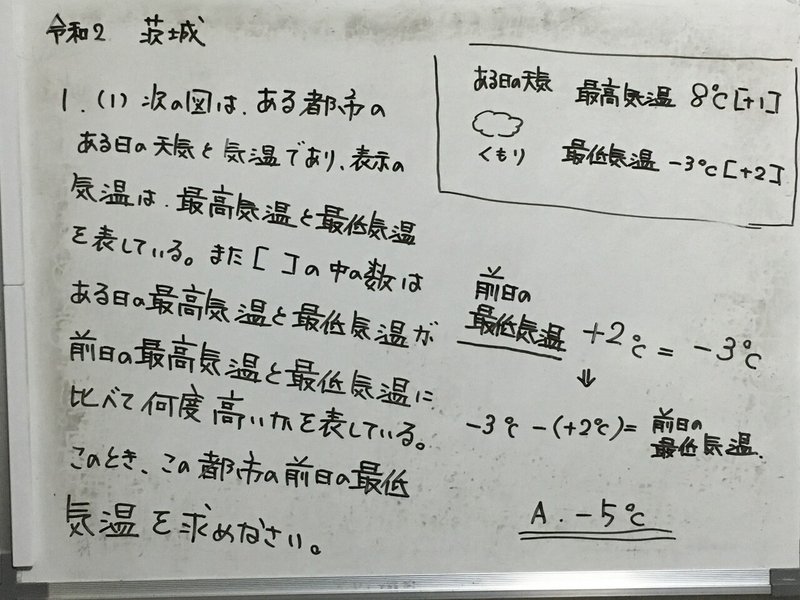 令和2 茨城
1.(1) 次の図は、ある都市の
ある日の天気と気温であり、表示の
気温は、最高気温と最低気温
を表している。また[ ]の中の数は
ある日の最高気温と最低気温が
前日の最高気温と最低気温に
比べて何度高いかを表している。
このとき、この都市の前日の最低
気温を求めなさい。
ある日の天気 最高気温 8℃[+1]
くもり 最低気温 -3℃[+2]
前日の
最低気温 +2℃ = -3℃
⇓
-3℃ -(+2℃)= 前日の
最低気温.
A. -5℃